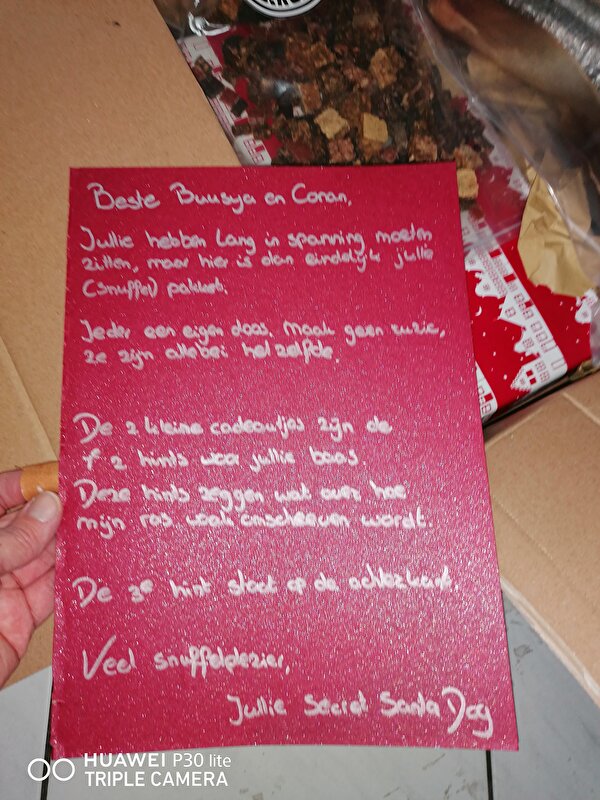 Beste Buusya en Conan,
Jullie hebben lang in spanning moeten
zitten, maar hier is dan eindelijk jullie
(snuffel) pakket.
Ieder een eigen doos. Maak geen ruzie,
ze zijn allebei hetzelfde.
De 2 kleine cadeautjes zijn de
2 hints voor jullie baas.
Deze hints zeggen wat over hoe
mijn ras vaak omschreven wordt.
De 3e hint staat op de achterkant.
Veel snuffelplezier,
Jullie Secret Santa Dog
HUAWEI P30 lite
TRIPLE CAMERA